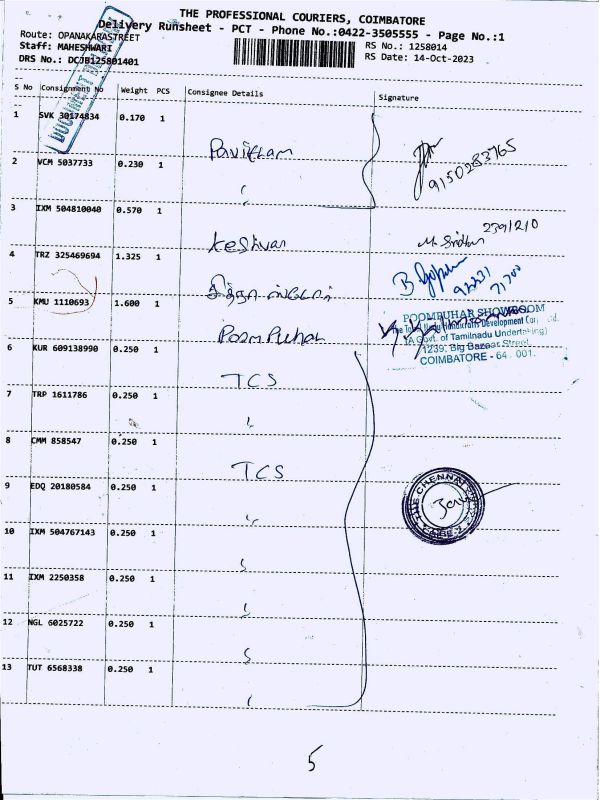 THE PROFESSIONAL COURIERS, COIMBATORE
Delivery Runsheet - PCT - Phone No.:0422-3505555 - Page No.:1
Route: OPANAKARASTREET
RS No.: 1258014
Staff: MAHESHWARI
RS Date: 14-Oct-2023
DRS No.: DCJB125801401
S No Consignment No Weight PCS Consignee Details Signature
1 SVK 30174834 0.170 1
Pavithram
9150283765
2 VCM 5037733 0.230 1
3 IXM 504810040 0.570 1
Keshvan
2391210
4 TRZ 325469694 1.325 1
92231
71700
5 KMU 1110693 1.600 1
PoomPuhar
POOMPUHAR SHOWROOM
The Tamil Nadu Handicrafts Development
(A Govt. of Tamilnadu Undertaking)
1239, Big Bazaar Street,
COIMBATORE - 64 001.
6 KUR 609138990 0.250 1
TCS
7 TRP 1611786 0.250 1
8 CMM 858547 0.250 1
TCS
9 EDQ 20180584 0.250 1
THE CHENNAI
10 IXM 504767143 0.250 1
11 IXM 2250358 0.250 1
12 NGL 6025722 0.250 1
13 TUT 6568338 0.250 1
5